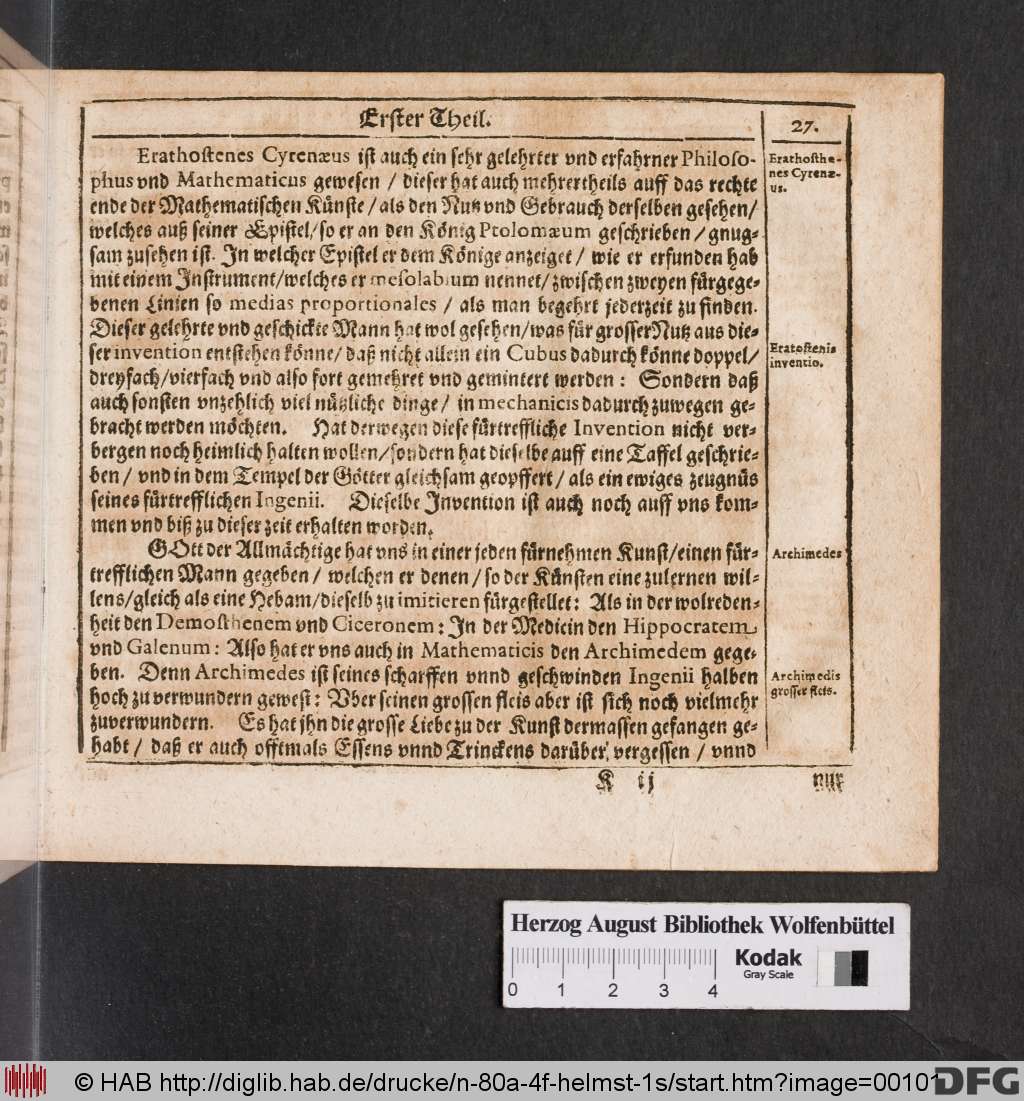 Erster Theil.
27.
Erathostenes Cyrenæus ist auch ein sehr gelehrter vnd erfahrner Philoso-
phus vnd Mathematicus gewesen / dieser hat auch mehrertheils auff das rechte
ende der Mathematischen Künste / als den Nutz vnd Gebrauch derselben gesehen /
welches auß seiner Epistel / so er an den König Ptolomæum geschrieben / gnug-
sam zusehen ist. In welcher Epistel er dem Könige anzeiget / wie er erfunden hab
mit einem Instrument / welches er mesolabium nennet / zwischen zweyen fürgege-
benen Linien so medias proportionales / als man begehrt jederzeit zu finden.
Dieser gelehrte vnd geschickte Mann hat wol gesehen / was für grosser Nutz aus die-
ser invention entstehen könne / daß nicht allein ein Cubus dadurch könne doppel /
dreyfach / vierfach vnd also fort gemehret vnd gemintert werden : Sondern daß
auch sonsten vnzehlich viel nützliche dinge / in mechanicis dadurch zuwegen ge-
bracht werden möchten. Hat derwegen diese fürtreffliche Invention nicht ver-
bergen noch heimlich halten wollen / sondern hat dieselbe auff eine Taffel geschrie-
ben / vnd in dem Tempel der Götter gleichsam geopffert / als ein ewiges zeugnüs
seines fürtrefflichen Ingenii. Dieselbe Invention ist auch noch auff vns kom-
men vnd biß zu dieser zeit erhalten worden.
GOtt der Allmächtige hat vns in einer jeden fürnehmen Kunst / einen für-
trefflichen Mann gegeben / welchen er denen / so der Künsten eine zulernen wil-
lens / gleich als eine Hebam / dieselb zu imitieren fürgestellet : Als in der wolreden-
heit den Demosthenem vnd Ciceronem : In der Medicin den Hippocratem
vnd Galenum : Also hat er vns auch in Mathematicis den Archimedem gege-
ben. Denn Archimedes ist seines scharffen vnnd geschwinden Ingenii halben
hoch zu verwundern gewest : Vber seinen grossen fleis aber ist sich noch vielmehr
zuverwundern. Es hat jhn die grosse Liebe zu der Kunst dermassen gefangen ge-
habt / daß er auch offtmals Essens vnnd Trinckens darüber vergessen / vnnd
K ij
nur
Erathosthe-
nes Cyrenæ-
us.
Eratostenis
inventio.
Archimedes
Archimedis
grosser fleis.
Herzog August Bibliothek Wolfenbüttel
Kodak
Gray Scale
0 1 2 3 4
© HAB http://diglib.hab.de/drucke/n-80a-4f-helmst-1s/start.htm?image=00101
DFG